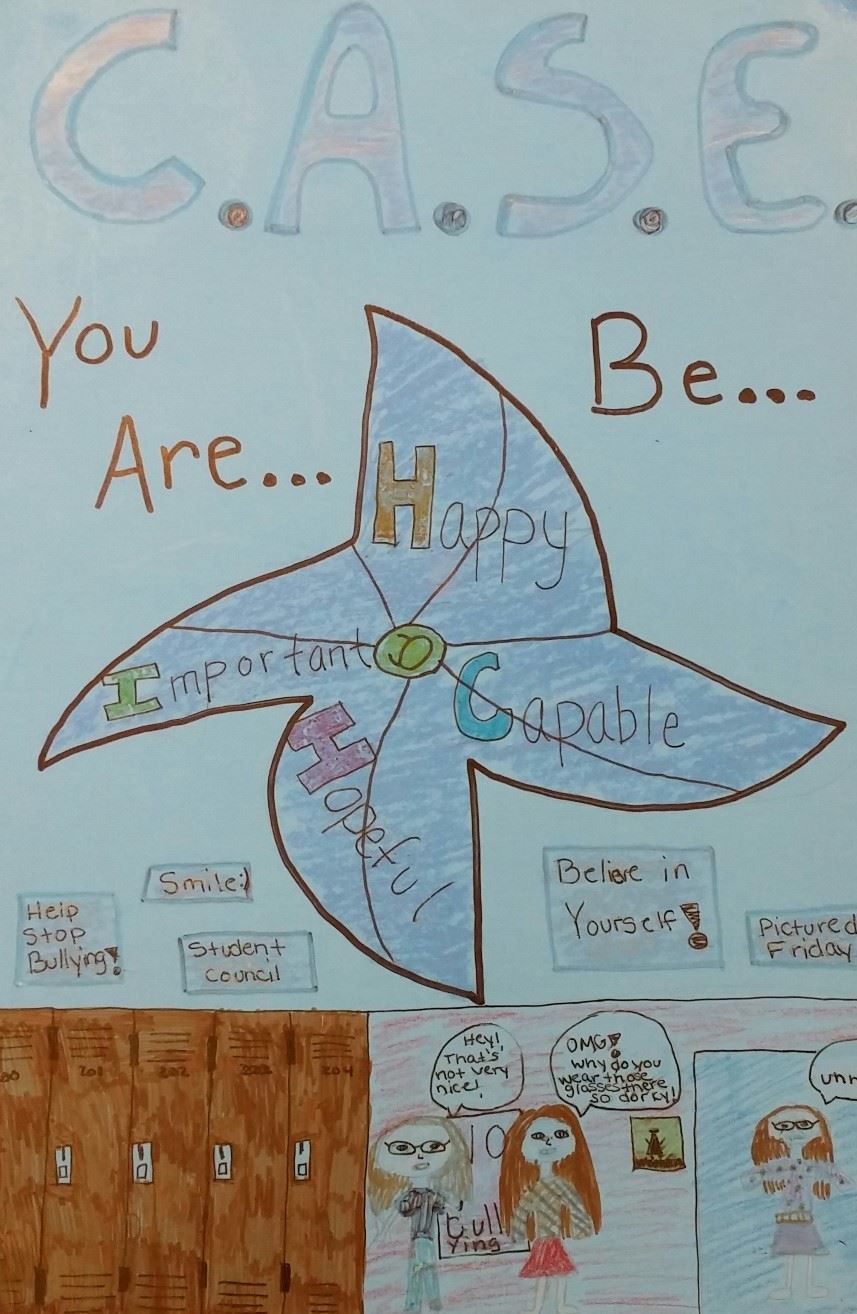 C.A.S.E.
You
Are...
Be...
Happy
Important
Capable
Hopeful
Smile:)
Help
Stop
Bullying!
Student
Council
Believe in
Yourself!
Pictured
Friday
201
202
203
204
Hey!
That's
not very
nice!
OMG!
why do you
wear those
glasses there
so dorky!
Bull
ying